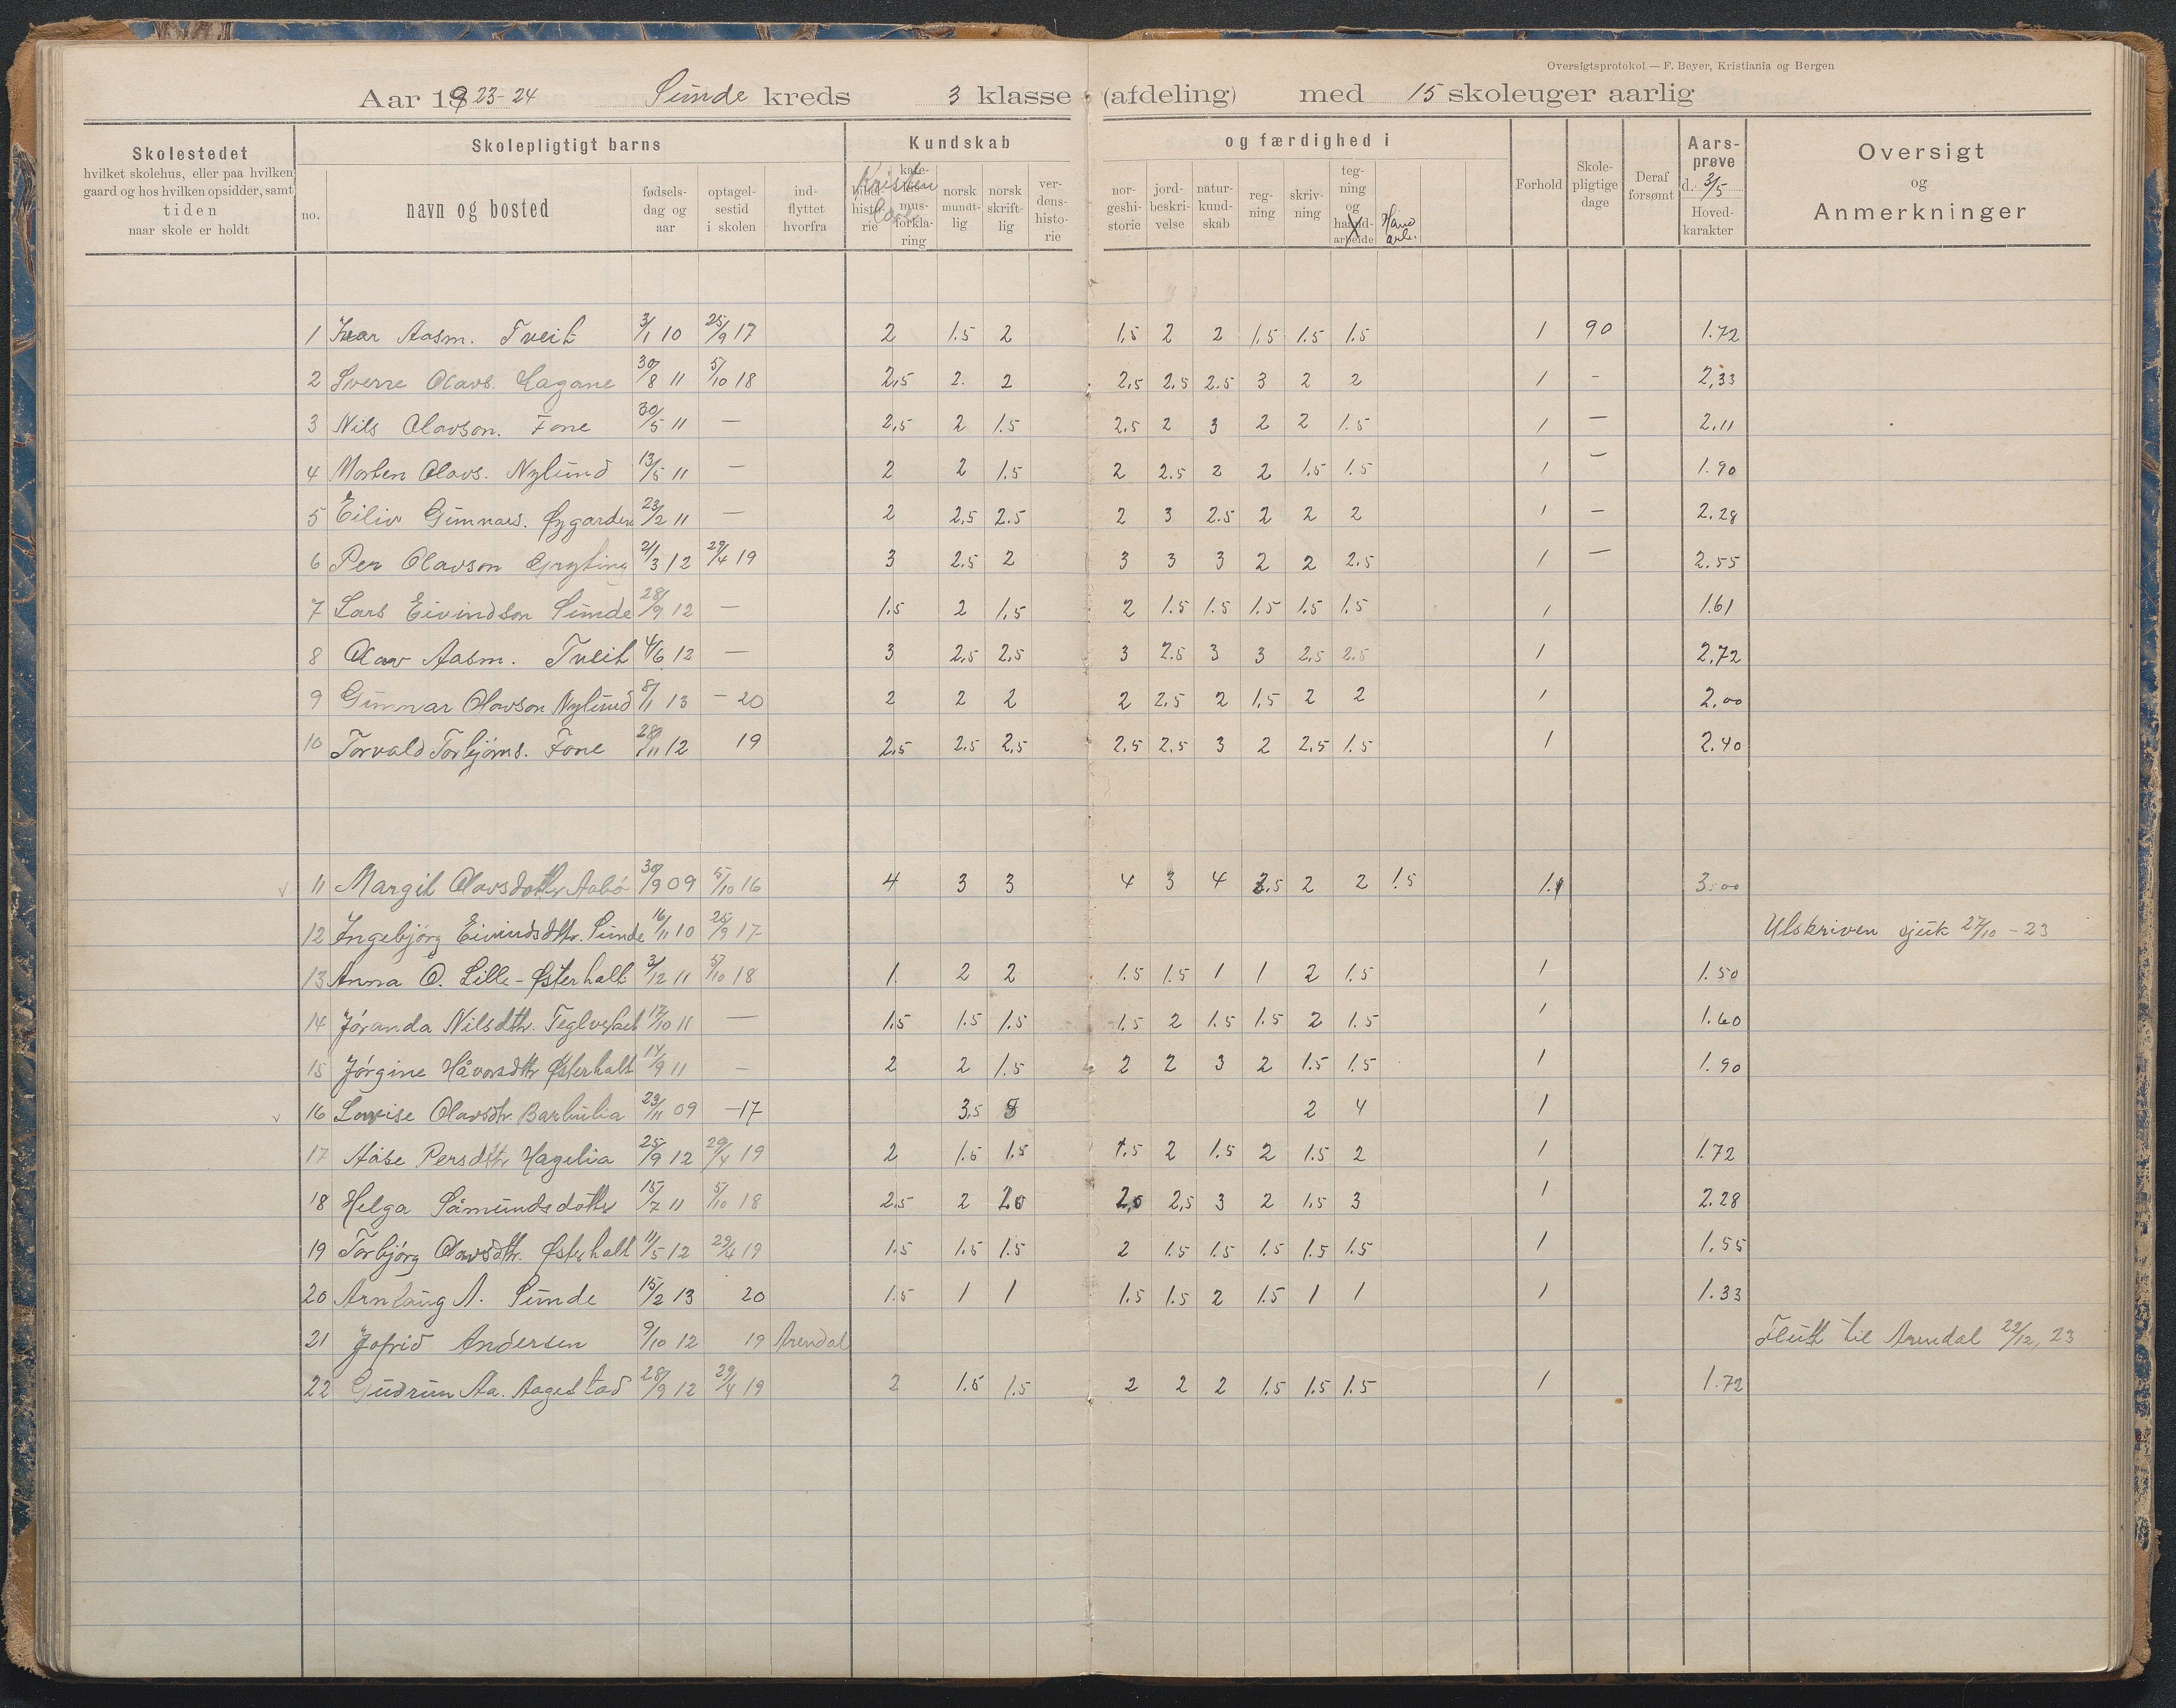 Oversigtsprotokol — F. Beyer, Kristiania og Bergen
Aar 1923-24 Sunde kreds 3 klasse (afdeling) med 15 skoleuger aarlig
Skolestedet
hvilket skolehus, eller paa hvilken
gaard og hos hvilken opsidder, samt
tiden
naar skole er holdt
Skolepligtigt barns
no.
navn og bosted
fødsels-
dag og
aar
optagel-
sestid
i skolen
ind-
flyttet
hvorfra
Kundskab
Kristen
bibel-
histo-
rie
kate-
mus-
forkla-
ring
norsk
mundt-
lig
norsk
skrift-
lig
ver-
dens-
histo-
rie
og færdighed i
nor-
geshi-
storie
jord-
beskri-
velse
natur-
kund-
skab
reg-
ning
skriv-
ning
teg-
ning
og
haand-
arbeide
Hand
arb.
Forhold
Skole-
pligtige
dage
Deraf
forsømt
Aars-
prøve
d. 3/5
Hoved-
karakter
Oversigt
og
Anmerkninger
1 Ivar Aasm. Tveit 3/1 10 25/9 17 2 1.5 2 1,5 2 2 1,5 1.5 1.5 1 90 1.72
2 Sverre Olavs. Hagane 30/8 11 5/10 18 2,5 2. 2 2,5 2.5 2.5 3 2 2 1 - 2,33
3 Nils Olavson. Fone 30/5 11 — 2,5 2 1.5 2.5 2 3 2 2 1.5 1 — 2.11
4 Morten Olavs. Nylund 13/5 11 — 2 2 1.5 2 2.5 2 2 1.5 1.5 1 — 1.90
5 Eiliv Gunnars. Øygarden 23/2 11 — 2 2,5 2.5 2 3 2.5 2 2 2 1 — 2.28
6 Per Olavson Gryting 21/3 12 29/4 19 3 2.5 2 3 3 3 2 2 2.5 1 — 2.55
7 Lars Eivindson Sunde 28/9 12 — 1.5 2 1,5 2 1.5 1.5 1.5 1.5 1.5 1 1.61
8 Olav Aasm. Tveit 4/6 12 — 3 2,5 2,5 3 2.5 3 3 2.5 2.5 1 2,72
9 Gunnar Olavson Nylund 8/1 13 - 20 2 2 2 2 2,5 2 1,5 2 2 1 2,00
10 Torvald Torbjørns. Fone 28/11 12 19 2,5 2.5 2,5 2,5 2,5 3 2 2,5 1.5 1 2.40
11 Margit Olavsdotter Aabø 30/9 09 5/10 16 4 3 3 4 3 4 3.5 2 2 1.5 1. 3.00
12 Ingebjørg Eivindsdtr. Sunde 16/11 10 25/9 17 Utskriven sjuk 27/10 - 23
13 Anna O. Lille-Østerhalt 3/12 11 5/10 18 1. 2 2 1.5 1.5 1 1 2 1.5 1 1.50
14 Jóranda Nilsdtr. 17/10 11 — 1.5 1.5 1.5 1.5 2 1.5 1.5 2 1.5 1 1.60
15 Jørgine Håvorsdtr Østerhalt 14/9 11 — 2 2 1.5 2 2 3 2 1.5 1.5 1 1.90
16 Lovise Olavsdtr. Barbulia 23/11 09 -17 3,5 2 4 1
17 Aase Persdtr Hagelia 25/9 12 29/4 19 2 1.5 1.5 1.5 2 1.5 2 1.5 2 1 1.72
18 Helga Såmundsdotter 15/7 11 5/10 18 2.5 2 2.0 2,0 2,5 3 2 1.5 3 1 2.28
19 Torbjørg Olavsdtr. Østerhalt 11/5 12 29/4 19 1.5 1.5 1.5 2 1.5 1.5 1.5 1.5 1.5 1 1,55
20 Arnlaug A. Sunde 15/2 13 20 1.5 1 1 1.5 1.5 2 1.5 1 1 1 1.33
21 Jofrid Andersen 9/10 12 19 Arendal Flutt til Arendal 22/12, 23
22 Gudrun Aa. Aagestad 28/9 12 29/4 19 2 1.5 1.5 2 2 2 1.5 1.5 1.5 1 1.72